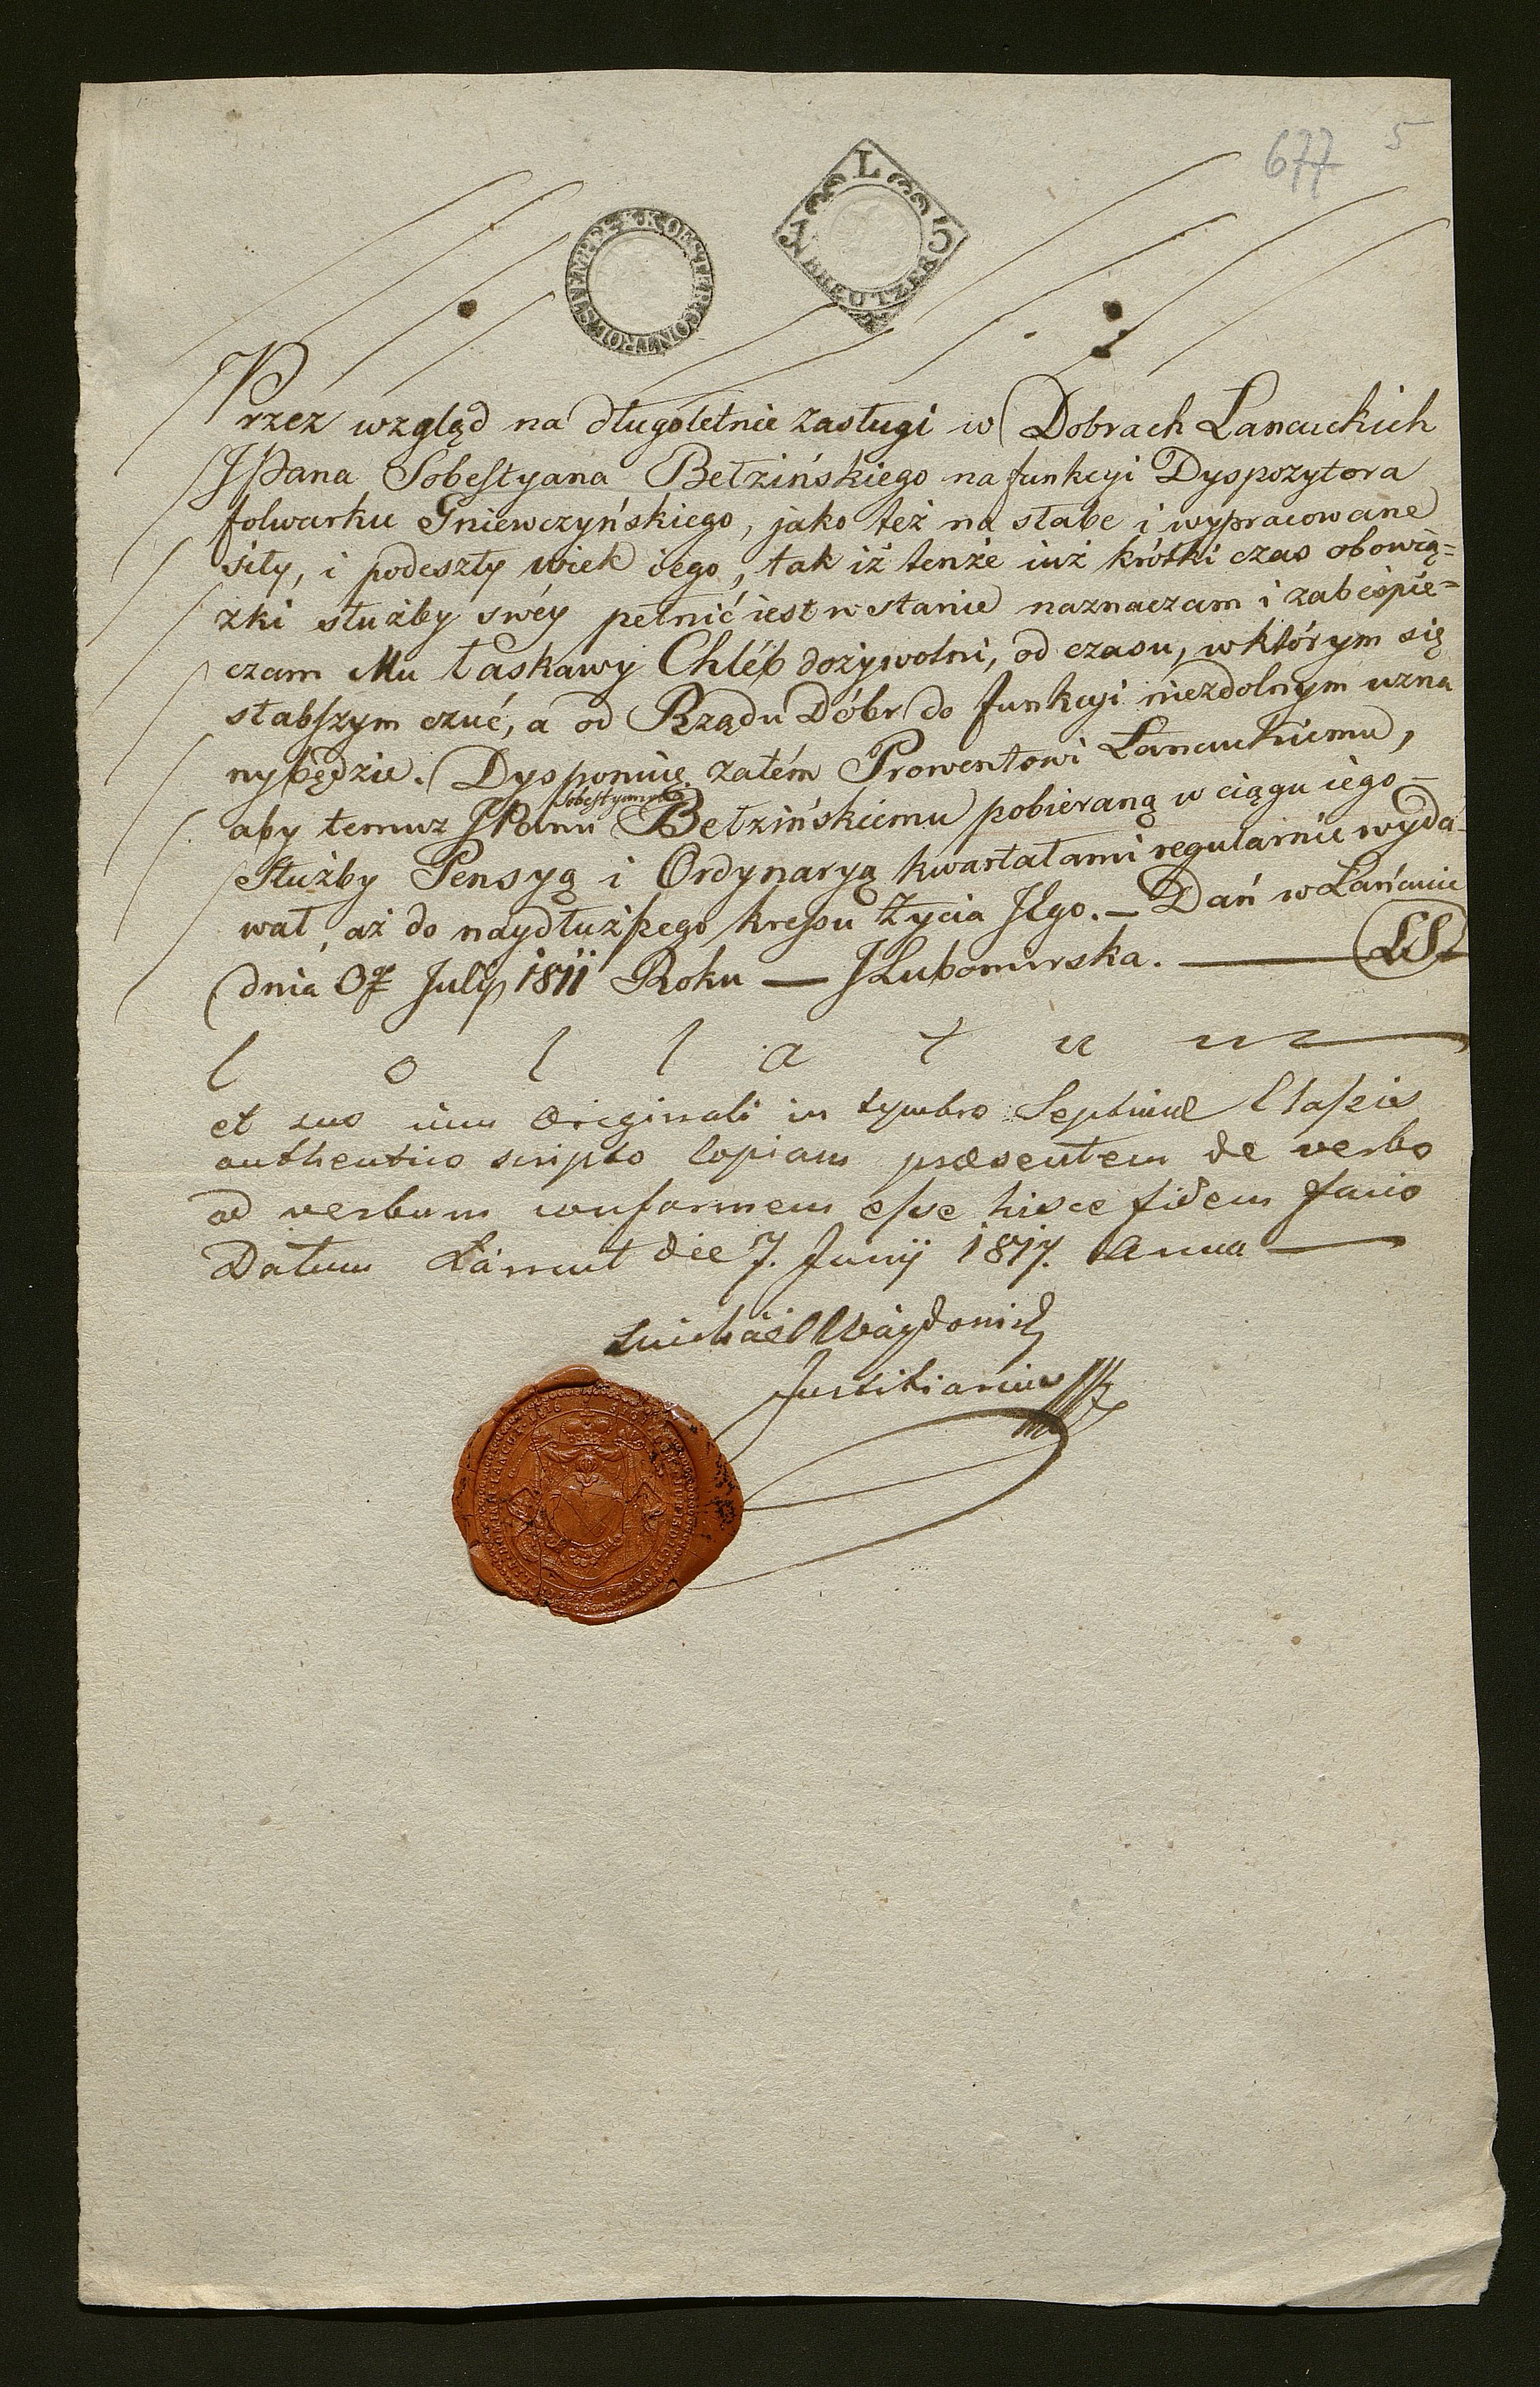 677 5
K.K. OESTER. CONTROL STEMPEL
L
5
KREUTZER
Przez wzgląd na długoletnie zasługi w Dobrach Lancuckich
JPana Sobestyana Betzińskiego na funkcyi Dyspozytora
folwarku Gniewczyńskiego, jako też na słabe i wypracowane
siły, i podeszły wiek iego, tak iż tenże iuż krótki czas obowią=
zki służby swéy pełnić iest w stanie naznaczam i zabespie=
czam Mu łaskawy Chléb dożywotni, od czasu, w którym się
słabszym czuć, a od Rządu Dóbr do funkcyi niezdolnym uzna
ny będzie. Dysponuię zatém Prowentowi Lancuckiemu,
Sobestyanowi
aby temuz JPanu Betzińskiemu pobieraną w ciągu iego
Służby Pensyą i Ordynaryą kwartałami regularnie wyda
wał, aż do naydłuższego kresu Życia Jego. — Dań w Łańcucie
dnia July 1811 Roku — JLubomirska. — LS
Collatum
et suo cum Originali in tymbro Septimæ Classis
authentico scripto Copiam præsentem de verbo
ad verbum conformem esse hisce fidem facio
Datum Łańcut die 7. Junij 1817. Anno —
Michäel
Justitiarius